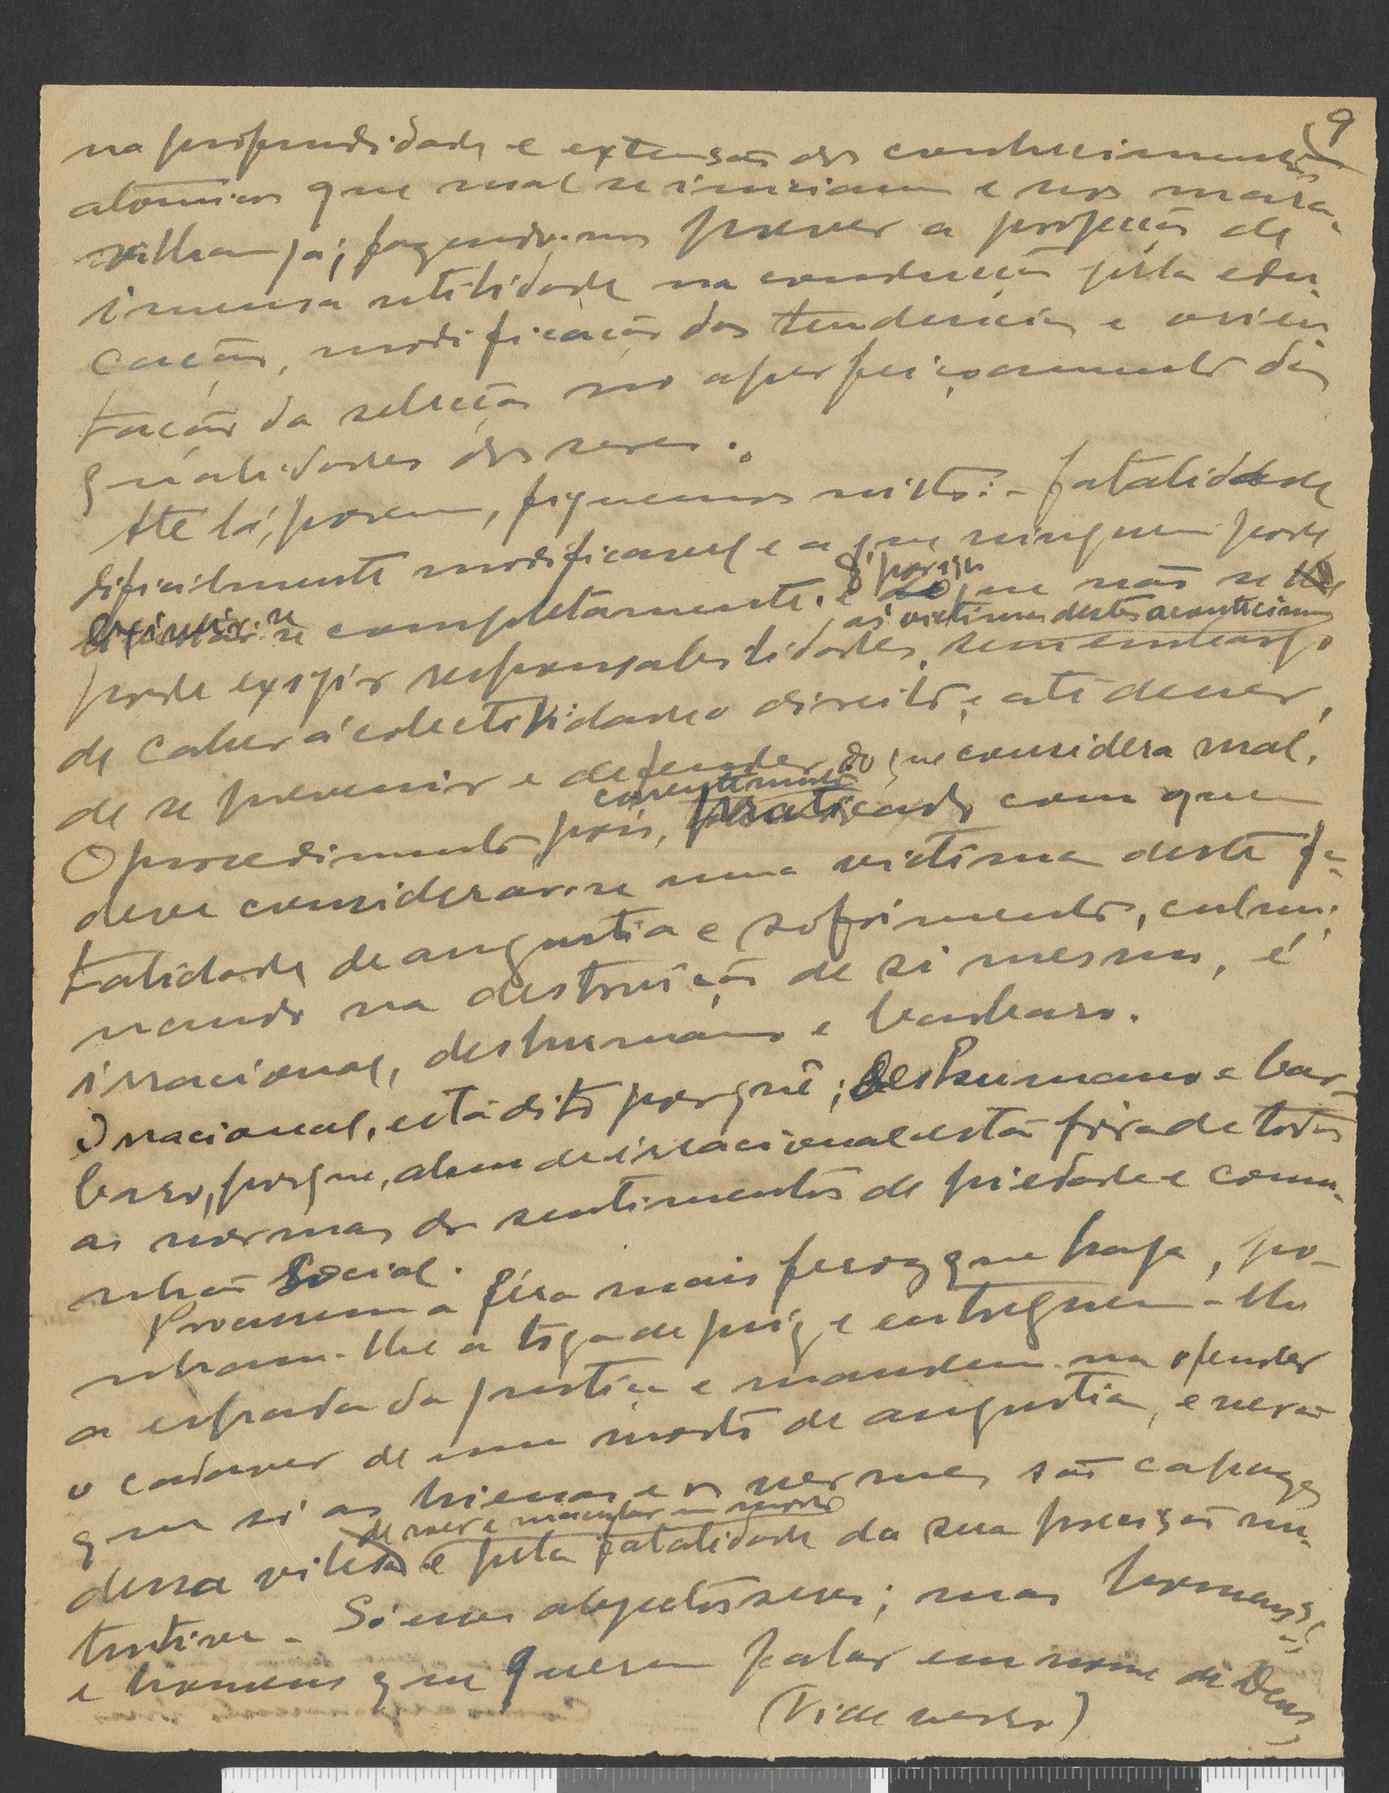 9
na profundidade e extensão dos conhecimentos
atomicos que mal se iniciam e nos mara-
vilham já; fazendo-nos prever a projecção de
imensa utilidade na conducção pela edu-
cação, modificação das tendencias e orien
tação da selecção no aperfeiçoamento das
qualidades dos seres.
Até lá, porem, fiquemos nisto: - fatalidade
dificilmente modificavel e a que ninguem pode
eximir-se completamente. é porisso que não se
pode exigir responsabilidades, ás victimas destes acontecimentos sem embargo
de caber á colectividade o direito, e até dever,
de se prevenir e defender do que considera mal.
O procedimento pois, correntemente praticado com quem
deve considerar-se uma victima desta fa-
talidade de angustia e sofrimento, culmi-
nando na destruição de si mesmo, é
irracional, deshumano e barbaro.
Irracional, está dito porquê; deshumano e bar-
baro, porque, alem de irracional está fóra de todas
as normas de sentimentos de piedade e comu-
nhão social.
Procurem a féra mais feroz que haja, po-
nham-lhe a toga de juiz e entreguem-lhe
a espada da justiça e mandem-na ofender
o cadaver de um morto de angustia, e verão
que só as hienas e os vermes são capazes
de roer e macular um morto
dessa vileza e pela fatalidade da sua precisão nu-
tritiva. Só esses abjectos seres; mas homens,
e homens que querem falar em nome de Deus,
(Vide verso)